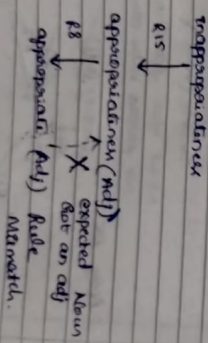 inappropriateness
R15
appropriateness (Adj)
R8
X expected Noun
Got an adj
appropriate (Adj) Rule
Mismatch.